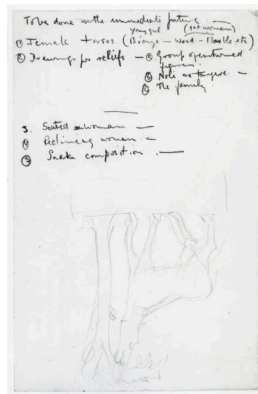 To be done in the immediate future —
young girl (red woman)
① Female torsos (Bronze – Wood – Marble etc)
② Drawings for reliefs — ① Group of upturned figures.
② Nole me tangere. —
③ The family
3. Seated woman —
④ Reclining women —
⑤ Snake composition. —